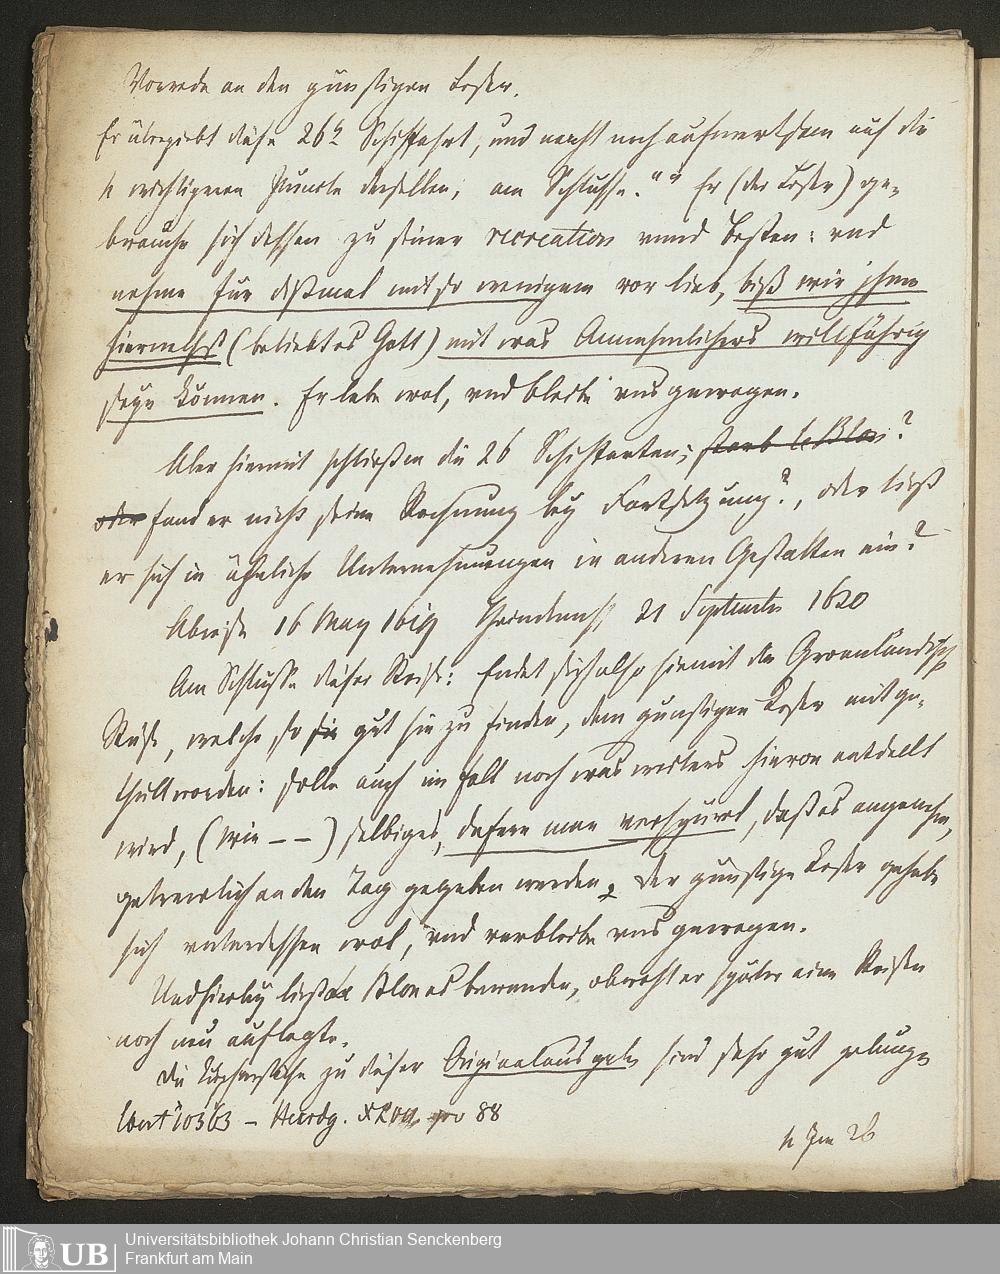 Vorrede an den günstigen Leser.
Er übergiebt diese 26te Schiffahrt, und macht noch aufmerksam auf die
wichtigeren Puncte derselben, am Schlusse. "" Er (der Leser) ge-
brauche sich dessen zu seiner recreation vnnd Besten: vnd
nehme für dißmal mit so wenigem vor lieb, biß wir jhme
hiernechst (beliebt es Gott) mit was Annehmlichers willfährig
seyn können. Er lebe wol, vnd bleibe uns gewogen.
Aber hiermit schließen die 26 Schiffarten; starb le Blon?
oder fand er nicht seine Rechnung bey Fortsetzung?, oder ließ
er sich in ähnliche Unternehmungen in anderen Gestalten ein?
Abreise 16 May 1619 21 September 1620
Am Schlusse dieser Reise: Endet sich also hiemit die Groenländische
Reise, welche so gut sie zu finden, dem günstigen Leser mitge-
theilt worden: solle auch im fall noch was weiters hievon entdeckt
wird, (wie – –) selbiges, dafern man verspüret, daß es angenehm,
getrewlich an den Tag gegeben werden. Der günstige Leser gehabe
sich unterdessen wol, vnd verbleibe uns gewogen.
Und hierbey ließ Blon es bewenden, obwohl er später eine Reise
noch neu auflegte.
Die Kupferstiche zu dieser Originalausgabe sind sehr gut gelungen
Ebert 10363 – 88
Universitätsbibliothek Johann Christian Senckenberg
Frankfurt am Main
UB